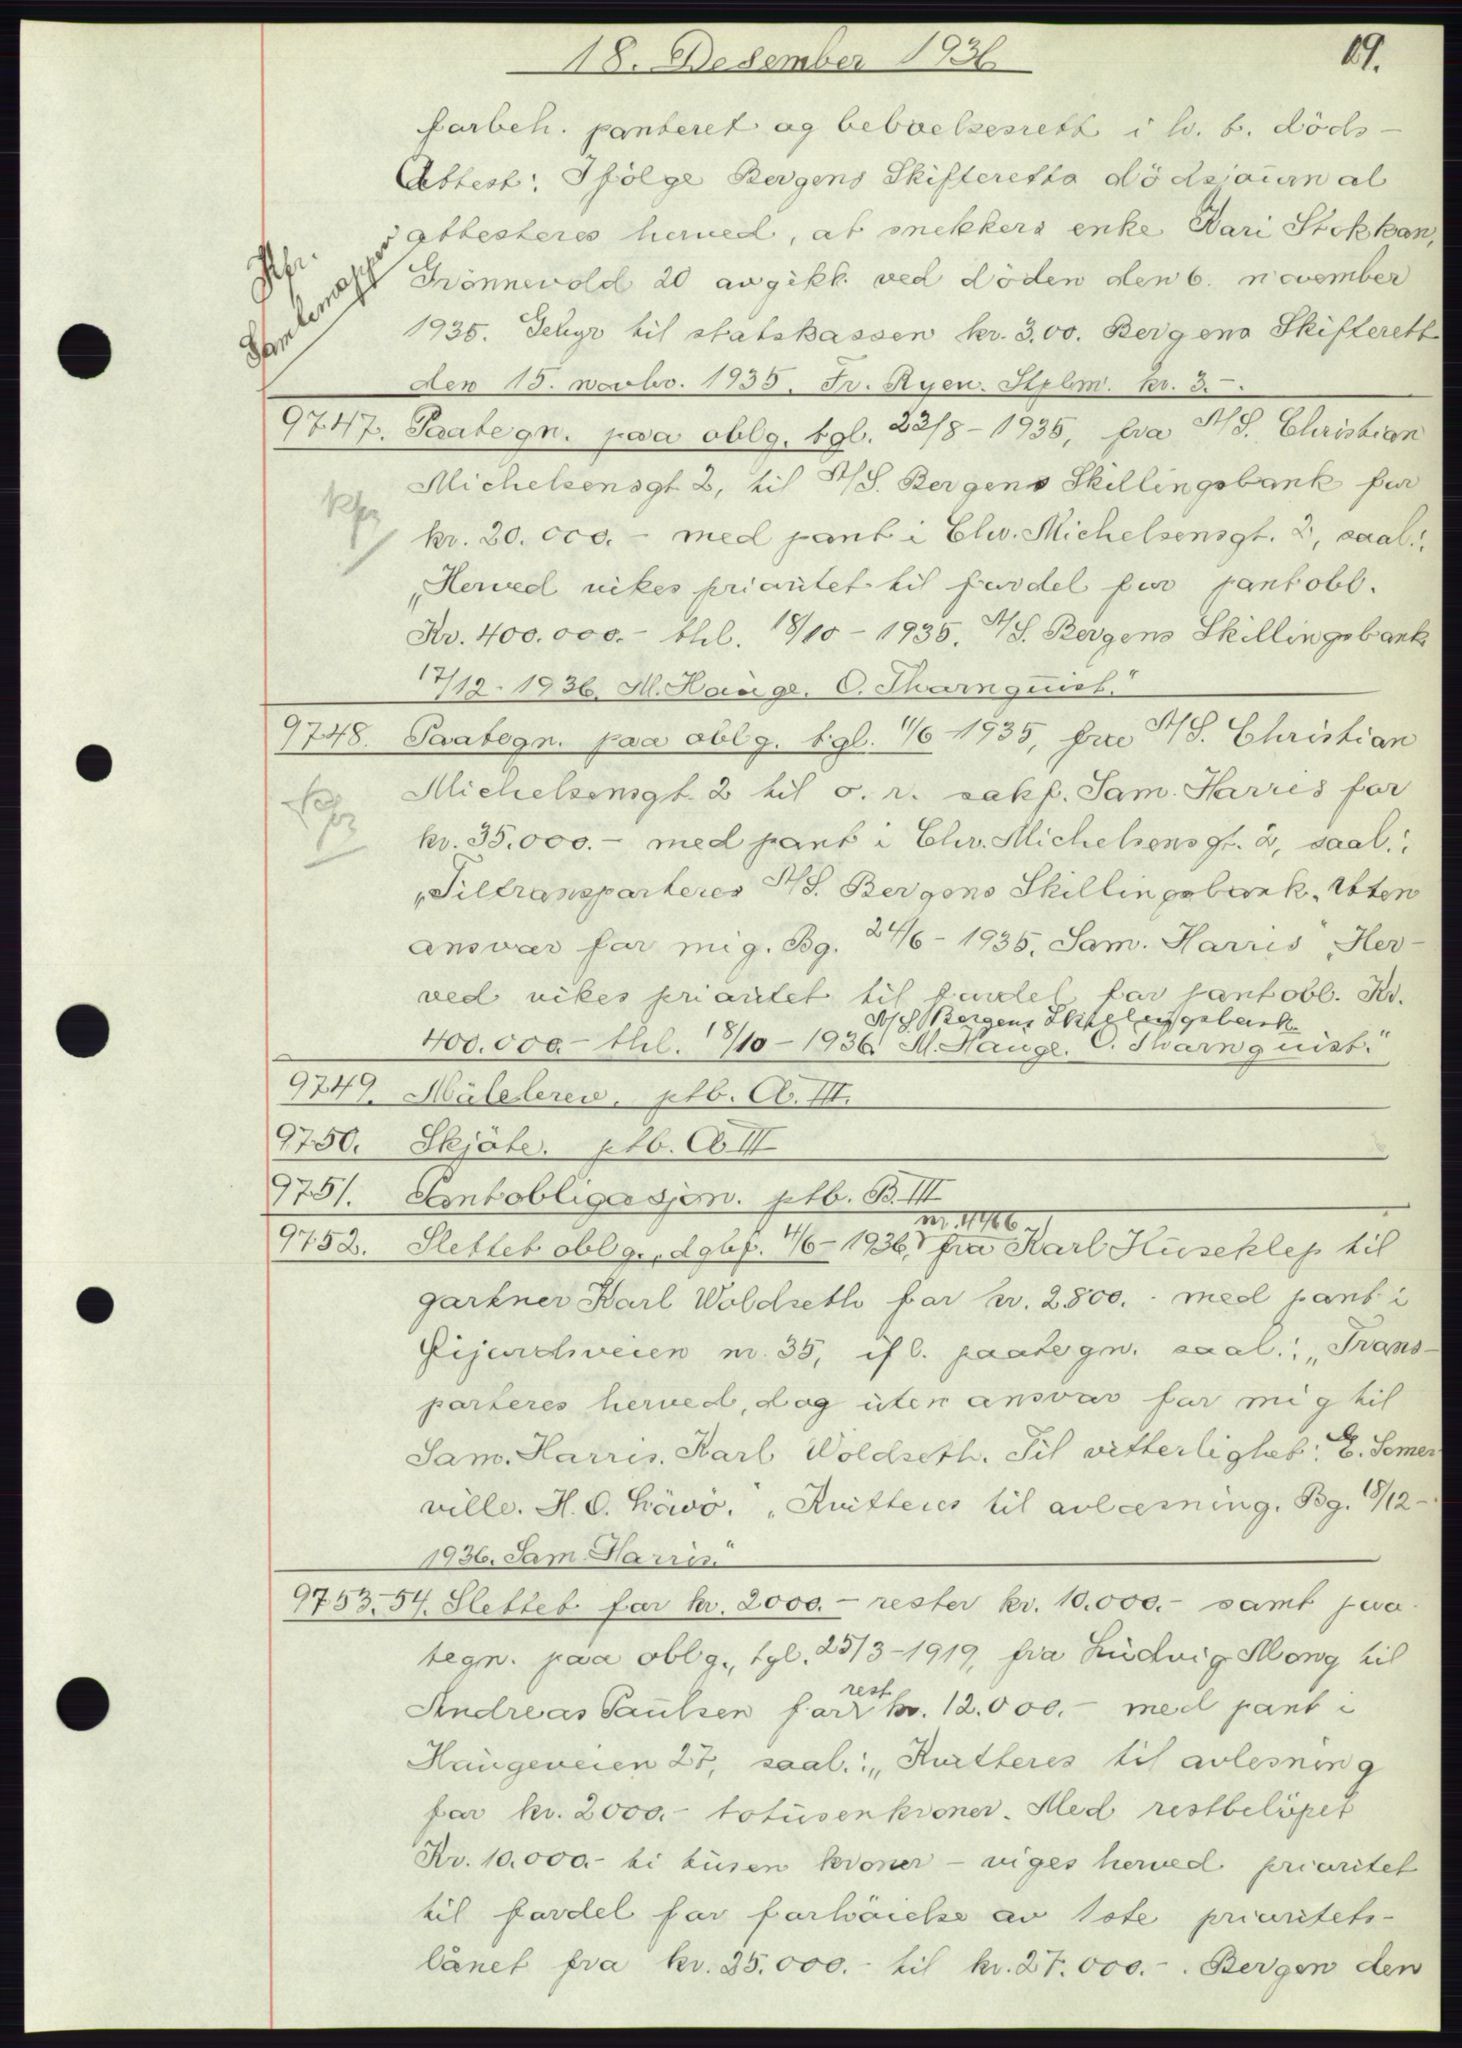 18. Desember 1936
19.
forbeh. panteret og beboelsesrett i h. t. döds-
Attest: Ifölge Bergens Skifteretts dödsjournal
Kfr.
Samlemappen
attesteres herved, at snekkers enke Kari Stokkan,
Grönnevold 20 avgikk ved döden den 6. november
1935. Gebyr til statskassen kr. 3,00. Bergens Skifterett
den 15. novbr. 1935. Fr. Ryen. Stplm. kr. 3.-.
9747. Paategn. paa oblg. tgl. 23/8-1935, fra A/S. Christian
Michelsensgt 2, til A/S. Bergens Skillingsbank for
kfr
kr. 20.000.- med pant i Chr. Michelsensgt. 2, saal.:
„Herved vikes prioritet til fordel for pantobl.
Kr. 400.000.- thl. 18/10-1935. A/S. Bergens Skillingsbank
17/12-1936. M. Hauge. O. Thornquist."
9748. Paategn. paa oblg. tgl. 11/6-1935, fra A/S. Christian
Michelsensgt 2 til o. r. sakf. Sam. Harris for
kfr
kr. 35.000.- med pant i Chr. Michelsensgt. 2, saal.:
„Tiltransporteres A/S. Bergens Skillingsbank. Uten
ansvar for mig. Bg. 24/6-1935. Sam. Harris" „Her-
ved vikes prioritet til fordel for pantobl. Kr.
A/S Bergens Skillingsbank
400.000.- thl. 18/10-1936. M. Hauge. O. Thornquist."
9749. Måleferev. ptb. A. III.
9750. Skjöte. ptb. A III
9751. Pantobligasjon. ptb. B. III
nr. 4466
9752. Slettet oblg., dgbf. 4/6-1936, fra Karl Huseklep til
gartner Karl Woldseth for kr. 2800.- med pant i
Eijordsveien nr. 35, ifl. paategn. saal.: „Trans-
porteres herved, dog uten ansvar for mig til
Sam. Harris. Karl Woldseth. Til vitterlighet: E. Somer-
ville. H. O. Lövö." „Kvitteres til avlæsning. Bg. 18/12-
1936. Sam. Harris."
9753.-54. Slettet for kr. 2000.- rester kr. 10.000.- samt paa-
tegn. paa oblg., tgl. 25/3-1919, fra Ludvig Mong til
rest
Andreas Paulsen for kr. 12.000.- med pant i
Haugeveien 27, saal.: „Kvitteres til avlesning
for kr. 2000.- totusenkroner. Med restbelöpet
Kr. 10.000.- ti tusen kroner - viges herved prioritet
til fordel for forhöielse av 1ste prioritets-
lånet fra kr. 25.000.- til kr. 27.000.-. Bergen den